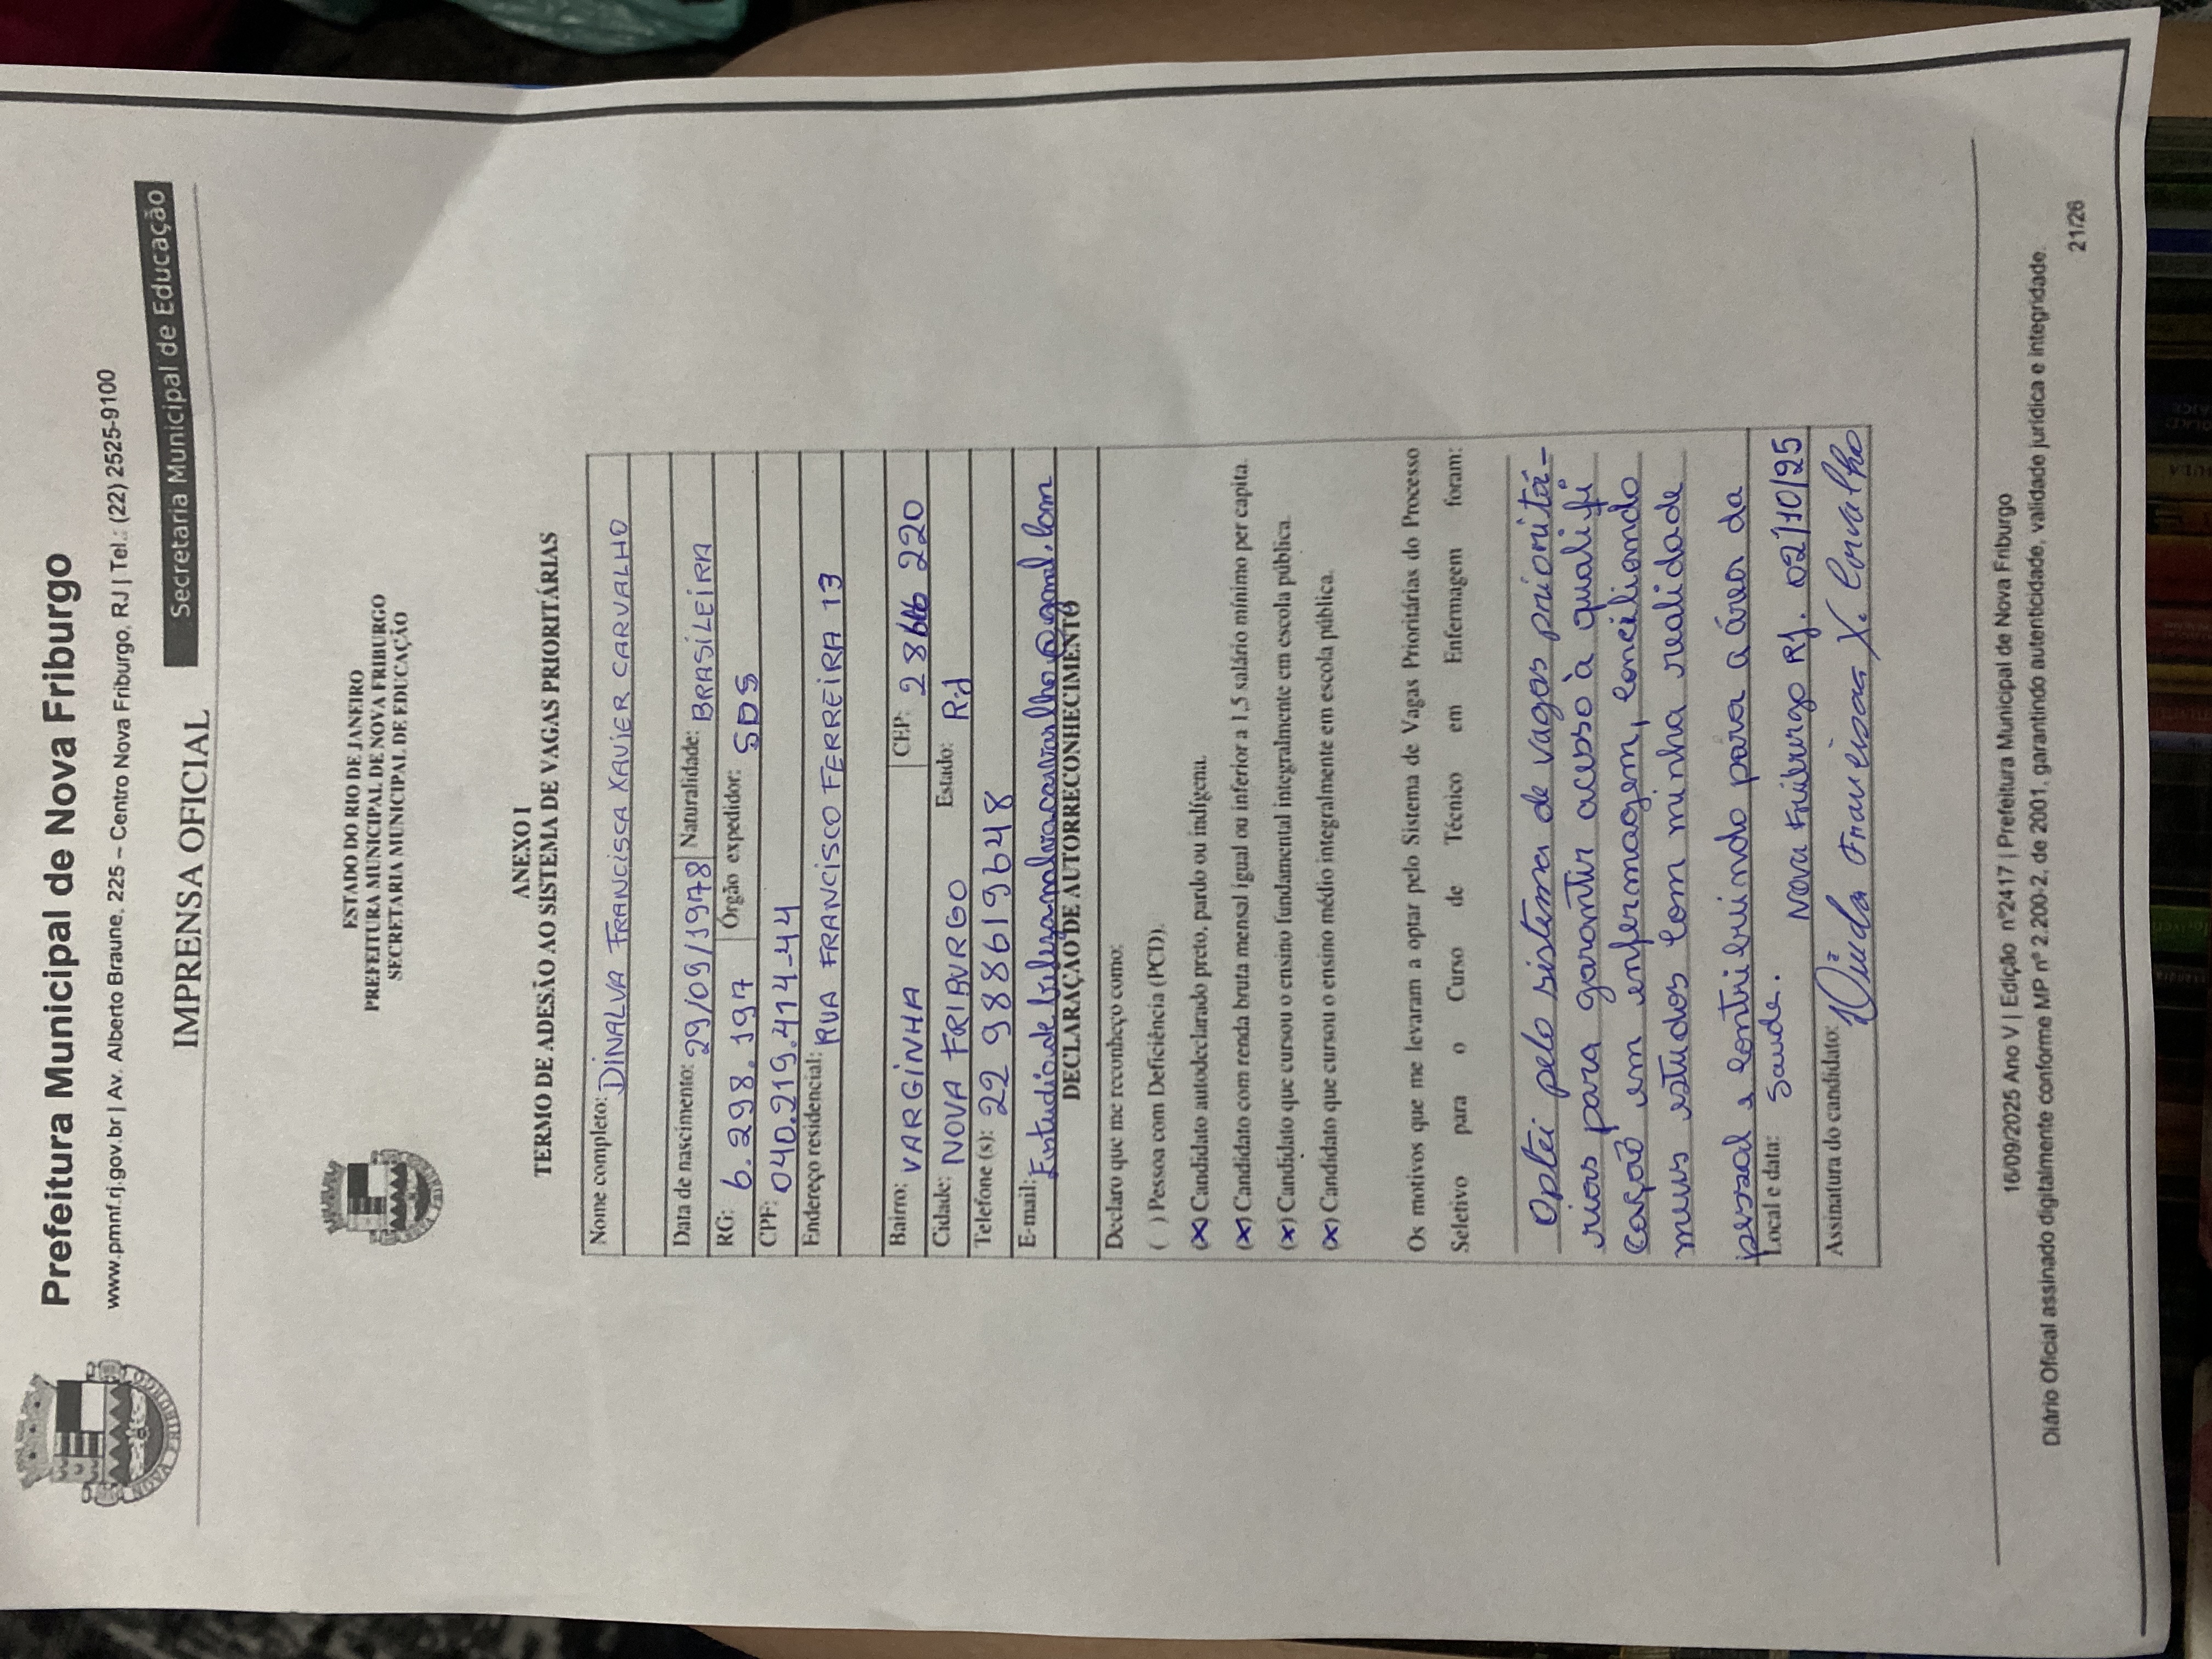 Prefeitura Municipal de Nova Friburgo
www.pmnf.rj.gov.br | Av. Alberto Braune, 225 – Centro Nova Friburgo, RJ | Tel.: (22) 2525-9100
Secretaria Municipal de Educação
IMPRENSA OFICIAL
NOVA FRIBURGO
ESTADO DO RIO DE JANEIRO
PREFEITURA MUNICIPAL DE NOVA FRIBURGO
SECRETARIA MUNICIPAL DE EDUCAÇÃO
ANEXO I
TERMO DE ADESÃO AO SISTEMA DE VAGAS PRIORITÁRIAS
Nome completo: DINALVA FRANCISCA XAVIER CARVALHO
Data de nascimento: 29/09/1978 Naturalidade: BRASILEIRA
RG: 6.298.197 Órgão expedidor: SDS
CPF: 040.219.414-44
Endereço residencial: RUA FRANCISCO FERREIRA 13
Bairro: VARGINHA CEP: 220
Cidade: NOVA FRIBURGO Estado: RJ
Telefone (s): 22 988619648
E-mail: Estudiode belezanalvacarvalho@gmal.com
DECLARAÇÃO DE AUTORRECONHECIMENTO
Declaro que me reconheço como:
( ) Pessoa com Deficiência (PCD).
(X) Candidato autodeclarado preto, pardo ou indígena.
(X) Candidato com renda bruta mensal igual ou inferior a 1,5 salário mínimo per capita.
(X) Candidato que cursou o ensino fundamental integralmente em escola pública.
(X) Candidato que cursou o ensino médio integralmente em escola pública.
Os motivos que me levaram a optar pelo Sistema de Vagas Prioritárias do Processo
Seletivo para o Curso de Técnico em Enfermagem foram:
Optei pelo sistema de vagas prioritá-
rias para garantir acesso à qualifi
cação em enfermagem, conciliando
meus estudos com minha realidade
pessoal e contribuindo para a área da
Local e data: Saude. Nova Friburgo RJ. 02/10/25
Assinatura do candidato: Francisca X. Carvalho
16/09/2025 Ano V | Edição nº2417 | Prefeitura Municipal de Nova Friburgo
Diário Oficial assinado digitalmente conforme MP nº 2.200-2, de 2001, garantindo autenticidade, validade jurídica e integridade.
21/26